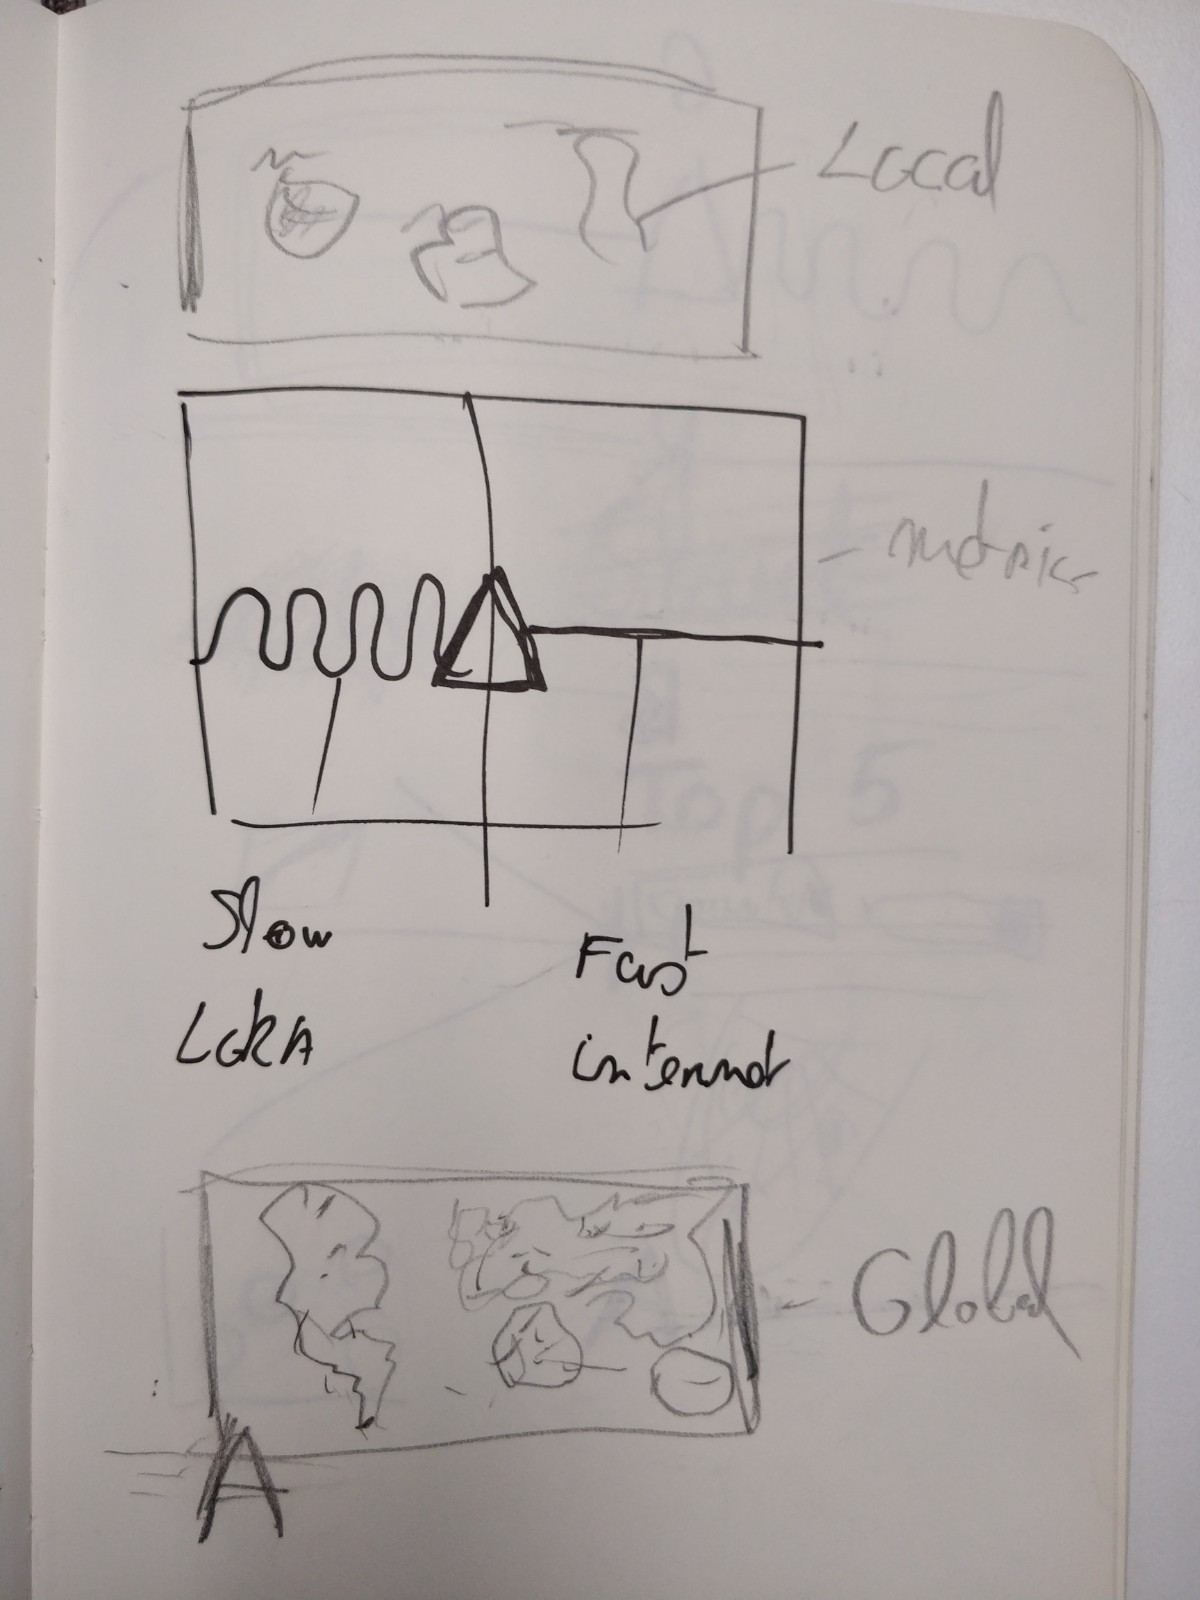 Local
metrics
Slow
LORA
Fast
internet
Global
A
Top 5